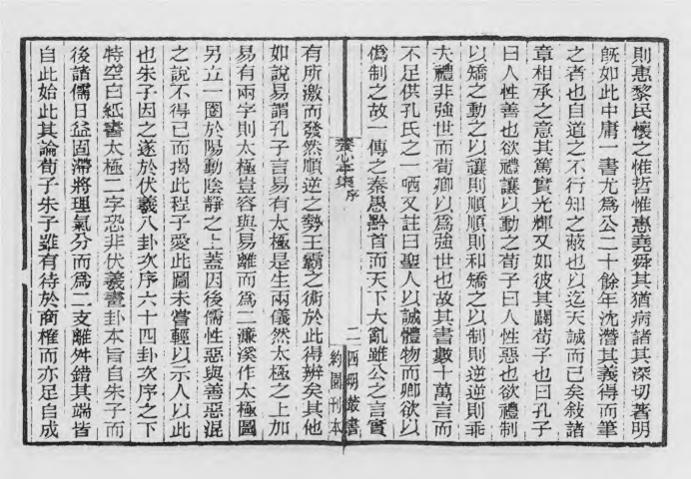 則惠黎民懷之惟哲惟惠堯舜其猶病諸其深切著明
既如此中庸一書尤為公二十餘年沈潛其義得而筆
之者也自道之不行知之蔽也以迄天誠而已矣敍諸
章相承之意其篤實光輝又如彼其闢荀子也曰孔子
曰人性善也欲禮讓以動之荀子曰人性惡也欲禮制
以矯之動之以讓則順順則和矯之以制則逆逆則乖
夫禮非強世而荀卿以為強世也故其書數十萬言而
不足供孔氏之一哂又註曰聖人以誠體物而卿欲以
僞制之故一傳之秦愚黔首而天下大亂雖公之言實
秦心本集 序
二 四明叢書
約園刊本
有所激而發然順逆之勢王霸之術於此得辨矣其他
如說易謂孔子言易有太極是生兩儀然太極之上加
易有兩字則太極豈容與易離而為二濂溪作太極圖
另立一圈於陽動陰靜之上蓋因後儒性惡與善惡混
之說不得已而揭此程子愛此圖未嘗輕以示人以此
也朱子因之遂於伏羲八卦次序六十四卦次序之下
特空白紙書太極二字恐非伏羲畫卦本旨自朱子而
後諸儒日益固滯將理氣分而為二支離舛錯其端皆
自此始此其論荀子朱子雖有待於商榷而亦足自成